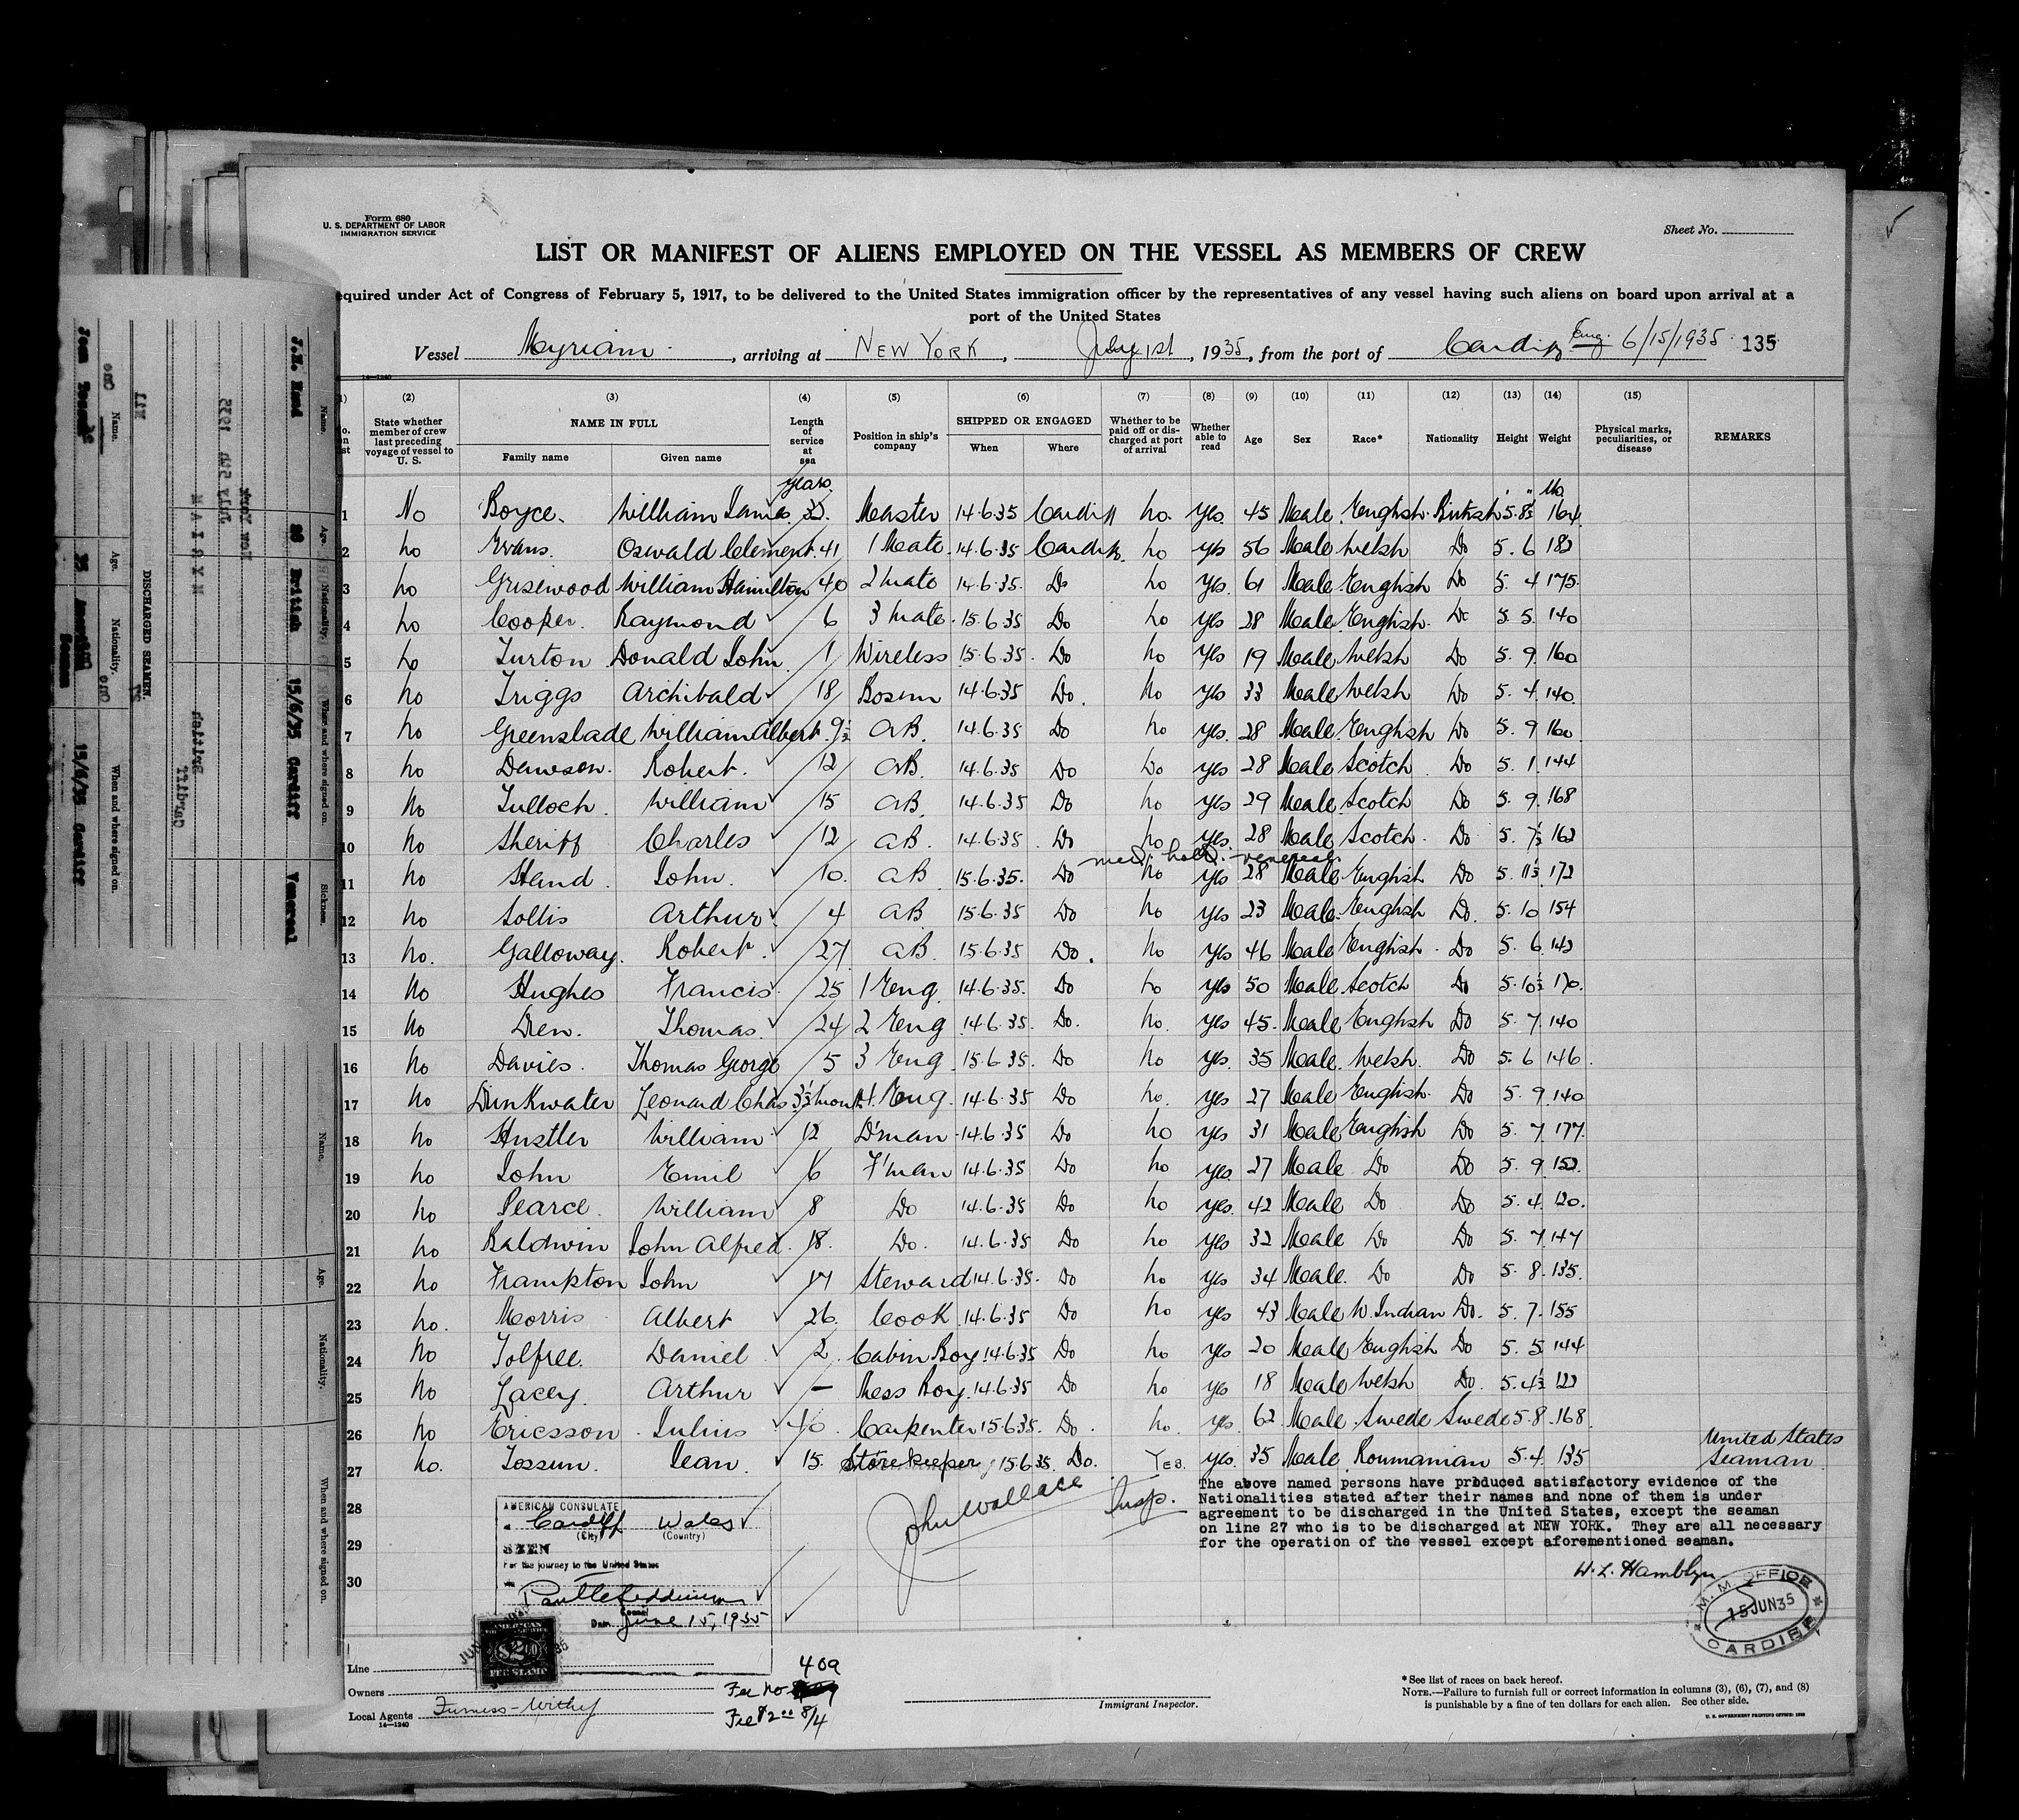 Form 680
U. S. DEPARTMENT OF LABOR
IMMIGRATION SERVICE
Sheet No.
LIST OR MANIFEST OF ALIENS EMPLOYED ON THE VESSEL AS MEMBERS OF CREW
equired under Act of Congress of February 5, 1917, to be delivered to the United States immigration officer by the representatives of any vessel having such aliens on board upon arrival at a
port of the United States
Vessel Myriam, arriving at NEW YORK, July 1st, 1935, from the port of Cardiff Eng. 6/15/1935 135
14—1240
(2) (3) (4) (5) (6) (7) (8) (9) (10) (11) (12) (13) (14) (15)
State whether member of crew last preceding voyage of vessel to U. S. NAME IN FULL Family name Given name Length of service at sea Position in ship's company SHIPPED OR ENGAGED When Where Whether to be paid off or discharged at port of arrival Whether able to read Age Sex Race* Nationality Height Weight Physical marks, peculiarities, or disease REMARKS
years. ' " lbs
1 No Boyce. William James 33. Master 14.6.35 Cardiff no. yes. 45 Male English British 5.8½ 164
2 no Evans. Oswald Clement 41 1 Mate 14.6.35 Cardiff. no yes 56 Male Welsh Do 5.6 182
3 no Grisewood William Hamilton 40 2 Mate 14.6.35. Do no yes. 61 Male English Do 5.4 175
4 no Cooper. Raymond 6 3 Mate 15.6.35 Do no yes 28 Male English Do 5.5 140
5 no Turton Donald John 1 Wireless 15.6.35 Do no yes 19 Male Welsh Do 5.9 160
6 no Triggs Archibald 18 Bosun 14.6.35 Do. no yes 33 Male Welsh Do 5.4 140
7 no Greenslade William Albert 9½ AB. 14.6.35 Do no yes. 28 Male English Do 5.9 160
8 no Dawson. Robert. 12 AB. 14.6.35 Do no yes 28 Male Scotch Do 5.1 144
9 no Tulloch. William 15 AB. 14.6.35 Do no yes 29 Male Scotch Do 5.9 168
10 no Sheriff Charles 12 AB. 14.6.35 Do no yes. 28 Male Scotch Do 5.7½ 162
med. hold. venereal
11 no Hand. John. 10. AB 15.6.35. Do no yes 28 Male English Do 5.11½ 172
12 no Sollis Arthur 4 AB 15.6.35 Do no yes 23 Male English Do. 5.10 154
13 no. Galloway. Robert. 27 AB. 15.6.35 Do. no yes 46 Male English Do 5.6 142
14 no Hughes Francis 25 1 Eng 14.6.35. Do no yes 50 Male Scotch Do 5.10½ 170.
15 no Dien. Thomas 24 2 Eng 14.6.35. Do. no. yes 45. Male English Do 5.7 140
16 no Davies. Thomas George 5 3 Eng 15.6.35. Do no yes. 35 Male Welsh. Do 5.6 146
17 no Drinkwater Leonard Chas 3½ month 4 Eng. 14.6.35 Do no. yes 27 Male English Do 5.9 140
18 no Hustler William 12 D'man 14.6.35 Do no yes 31 Male English Do 5.7 177.
19 no John Emil 6 F'man 14.6.35 Do no yes. 27 Male Do Do 5.9 152.
20 no Pearce. William 8 Do 14.6.35 Do no yes. 42 Male Do Do 5.4 120.
21 no Baldwin John Alfred. 18. Do. 14.6.35 Do no yes 32 Male Do Do 5.7 147
22 no Frampton John 17 Steward 14.6.35. Do no yes 34 Male. Do Do 5.8 135.
23 no. Morris Albert 26. Cook 14.6.35 Do no yes 43 Male W. Indian Do. 5.7. 155
24 no Tolfree. Daniel 2. Cabin Boy 14.6.35 Do no yes 20 Male English Do 5.5 144
25 no Lacey. Arthur — Mess Boy. 14.6.35 Do no yes 18 Male Welsh Do. 5.4½ 122
26 no Ericsson Julius 40. Carpenter 15.6.35. Do. no. yes. 62 Male Swede Swede 5.8 168
27 no. Tossun. Jean 15. Storekeeper 15.6.35. Do. Yes. yes. 35 Male Roumanian 5.4 135 United States Seaman
28
29
30
The above named persons have produced satisfactory evidence of the
Nationalities stated after their names and none of them is under
agreement to be discharged in the United States, except the seaman
on line 27 who is to be discharged at NEW YORK. They are all necessary
for the operation of the vessel except aforementioned seaman.
W. L. Hamblyn
M. M. OFFICE
15 JUN 35
CARDIFF
John Wallace Insp.
AMERICAN CONSULATE
Cardiff Wales
(City) (Country)
SEEN
For the journey to the United States
Consul
Date June 15, 1935
AMERICAN
$2.00
FEE STAMP
Line
Owners
Local Agents Furness-Withy
14—1240
409
Fee No
Fee $2.00 8/4
Immigrant Inspector.
*See list of races on back hereof.
NOTE.—Failure to furnish full or correct information in columns (3), (6), (7), and (8)
is punishable by a fine of ten dollars for each alien. See other side.
DISCHARGED SEAMEN.
Name. Age. Nationality. When and where signed on.
15/6/35 Cardiff
Name. Age. Nationality. When and where signed on. Sickness.
J.H. Hand 28 British 15/6/35 Cardiff Venereal
Name. Age. Nationality. When and where signed on.